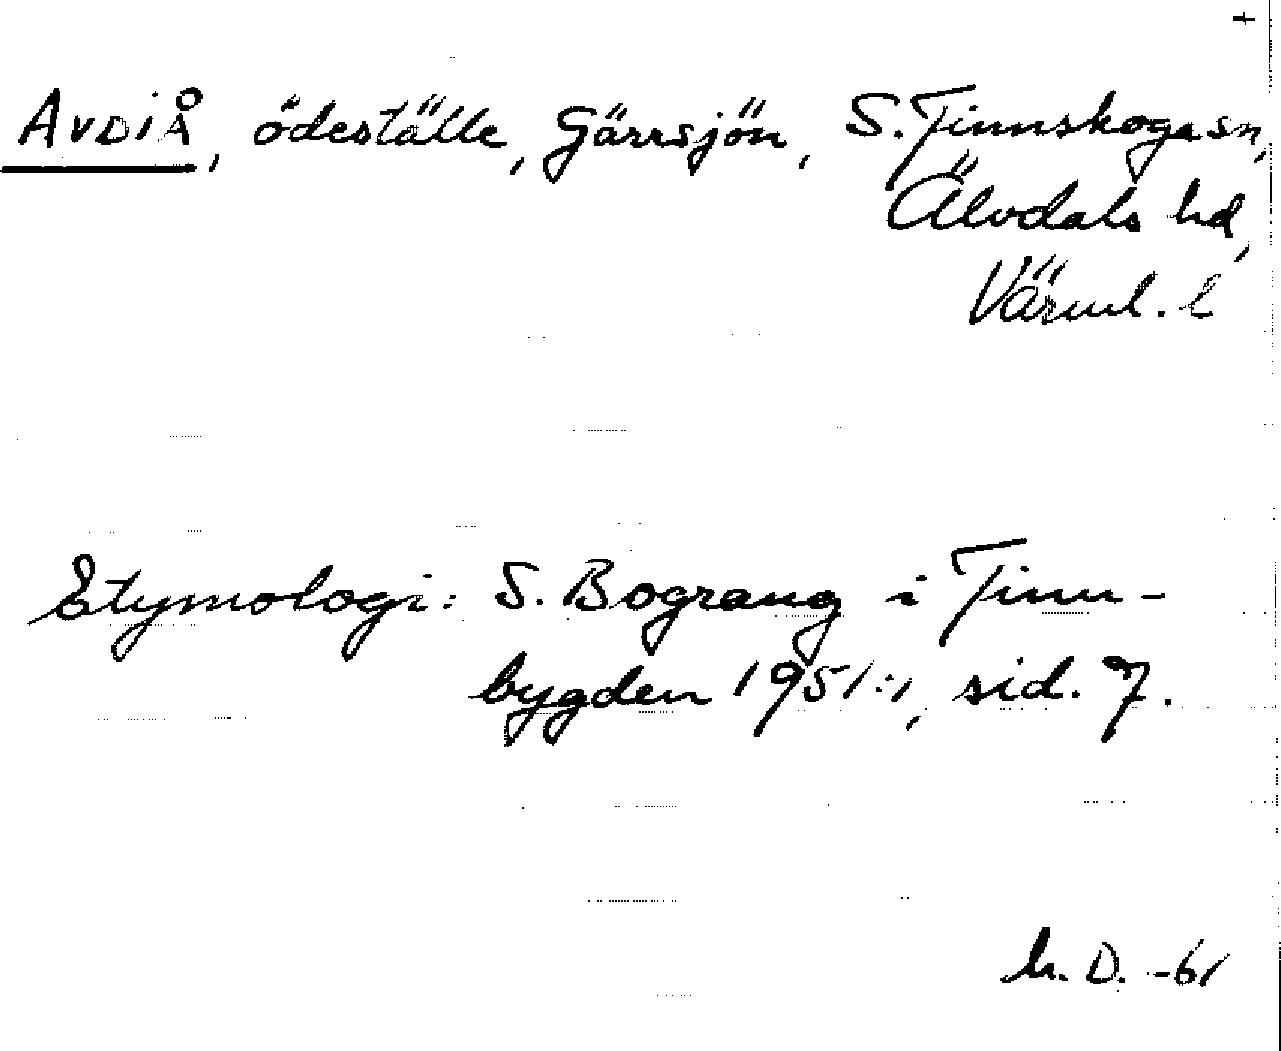 +
AVDIÅ, ödeställe, Gärrsjön, S. Finnskoga sn,
Älvdals hd,
Värml. l
Etymologi: S. Bograng i Finn-
bygden 1951:1, sid. 7.
D. -61